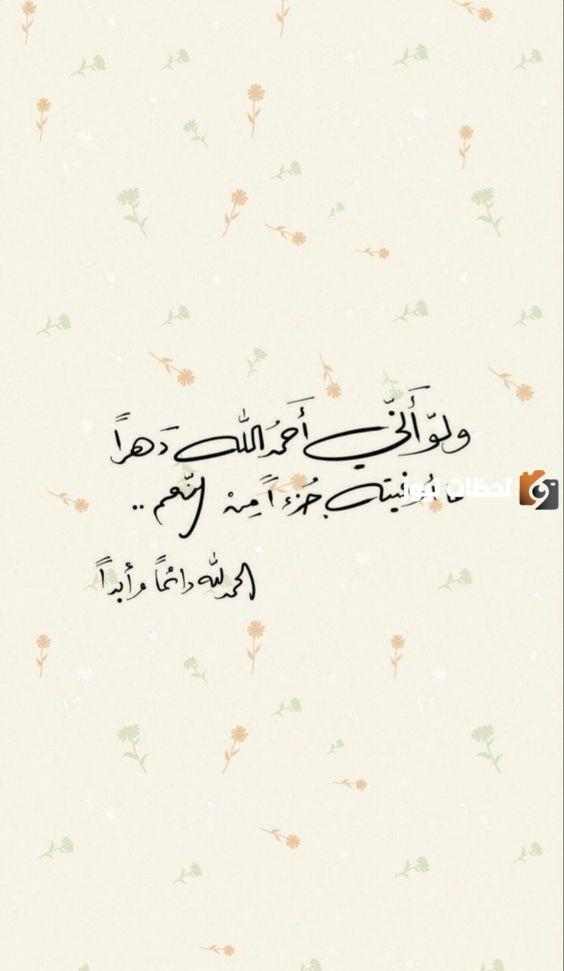 ولو أَنّي أَحمَدُ الله دَهراً
ما وفيته جُزءاً مِنْ النّعم ..
الحمدلله دائماً وأبداً
لحظات نيوز